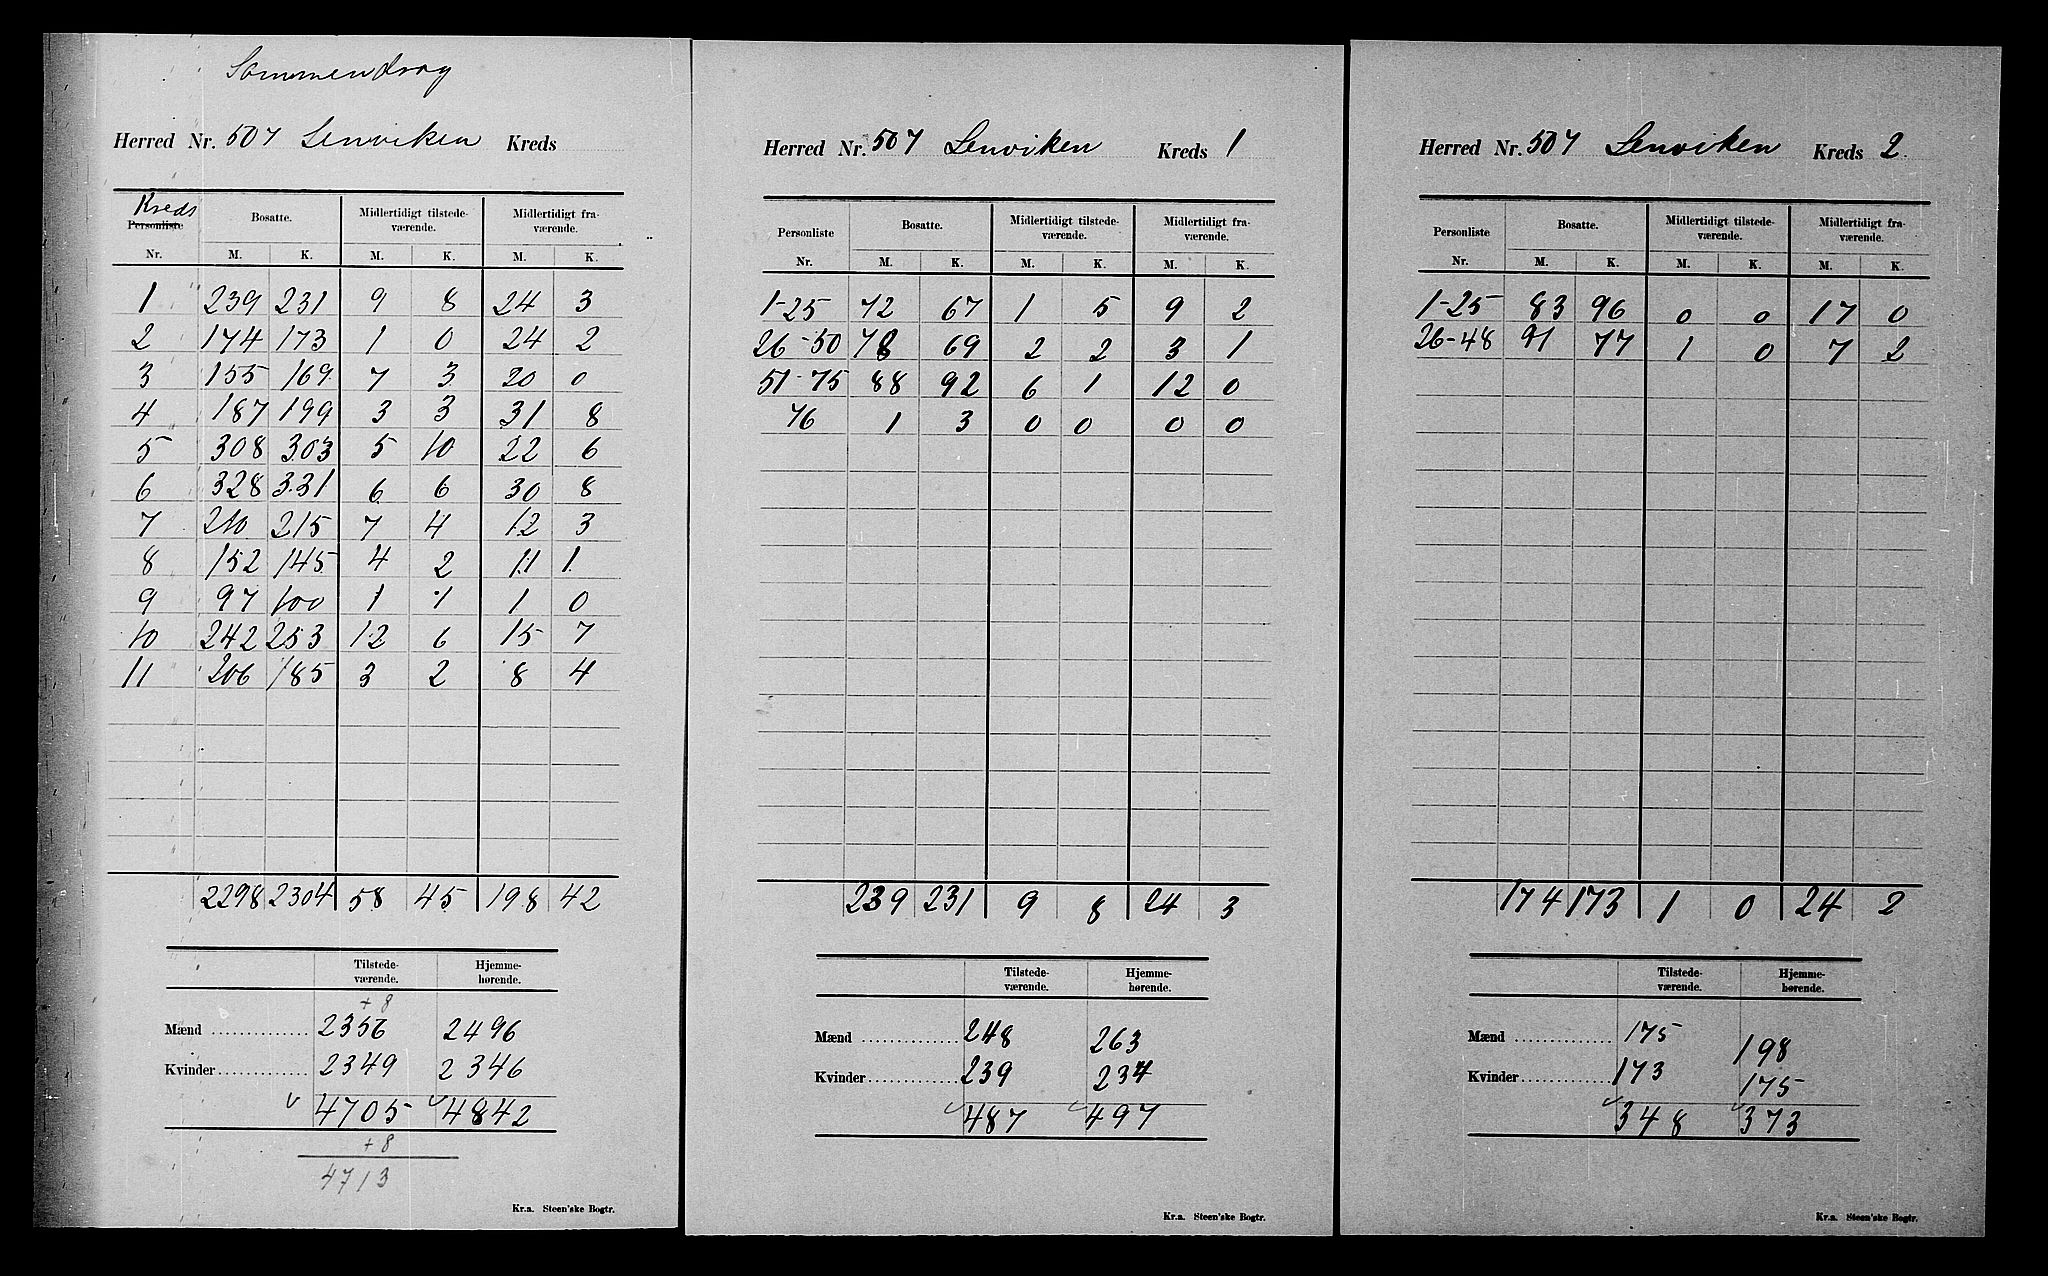 Sammendrag
Herred Nr. 507 Lenviken Kreds
Kreds
Personliste Bosatte. Midlertidigt tilstede- Midlertidigt fra-
værende. værende.
Nr. M. K. M. K. M. K.
1 239 231 9 8 24 3
2 174 173 1 0 24 2
3 155 169 7 3 20 0
4 187 199 3 3 31 8
5 308 303 5 10 22 6
6 328 331 6 6 30 8
7 210 215 7 4 12 3
8 152 145 4 2 11 1
9 97 100 1 1 1 0
10 242 253 12 6 15 7
11 206 185 3 2 8 4
2298 2304 58 45 198 42
Tilstede- Hjemme-
værende. hørende.
+8
Mænd 2356 2496
Kvinder 2349 2346
4705 4842
+8
4713
Kr.a. Steen'ske Bogtr.
Herred Nr. 507 Lenviken Kreds 1
Personliste Bosatte. Midlertidigt tilstede- Midlertidigt fra-
værende. værende.
Nr. M. K. M. K. M. K.
1-25 72 67 1 5 9 2
26-50 78 69 2 2 3 1
51-75 88 92 6 1 12 0
76 1 3 0 0 0 0
239 231 9 8 24 3
Tilstede- Hjemme-
værende. hørende.
Mænd 248 263
Kvinder 239 234
487 497
Kr.a. Steen'ske Bogtr.
Herred Nr. 507 Lenviken Kreds 2.
Personliste Bosatte. Midlertidigt tilstede- Midlertidigt fra-
værende. værende.
Nr. M. K. M. K. M. K.
1-25 83 96 0 0 17 0
26-48 91 77 1 0 7 2
174 173 1 0 24 2
Tilstede- Hjemme-
værende. hørende.
Mænd 175 198
Kvinder 173 175
348 373
Kr.a. Steen'ske Bogtr.